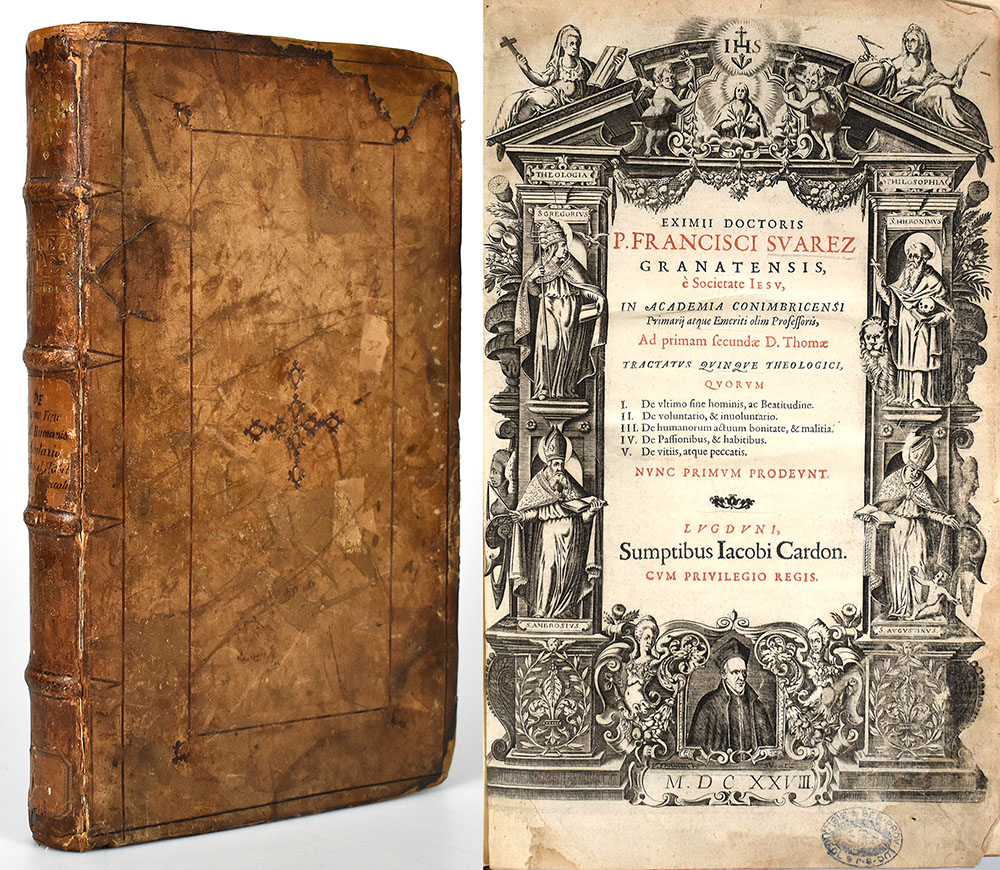 DE
Fine
Humanis
IHS
THEOLOGIA
PHILOSOPHIA
S. GREGORIVS
S. HIERONIMVS
EXIMII DOCTORIS
P. FRANCISCI SVAREZ
GRANATENSIS,
è Societate IESV,
IN ACADEMIA CONIMBRICENSI
Primarij atque Emeriti olim Professoris,
Ad primam secundæ D. Thomæ
TRACTATVS QVINQVE THEOLOGICI,
QVORVM
I. De vltimo fine hominis, ac Beatitudine.
II. De voluntario, & inuoluntario.
III. De humanorum actuum bonitate, & malitia.
IV. De Passionibus, & habitibus.
V. De vitiis, atque peccatis.
NVNC PRIMVM PRODEVNT.
LVGDVNI,
Sumptibus Iacobi Cardon.
CVM PRIVILEGIO REGIS.
S. AMBROSIVS.
S. AVGVSTINVS.
M. DC XXVIII